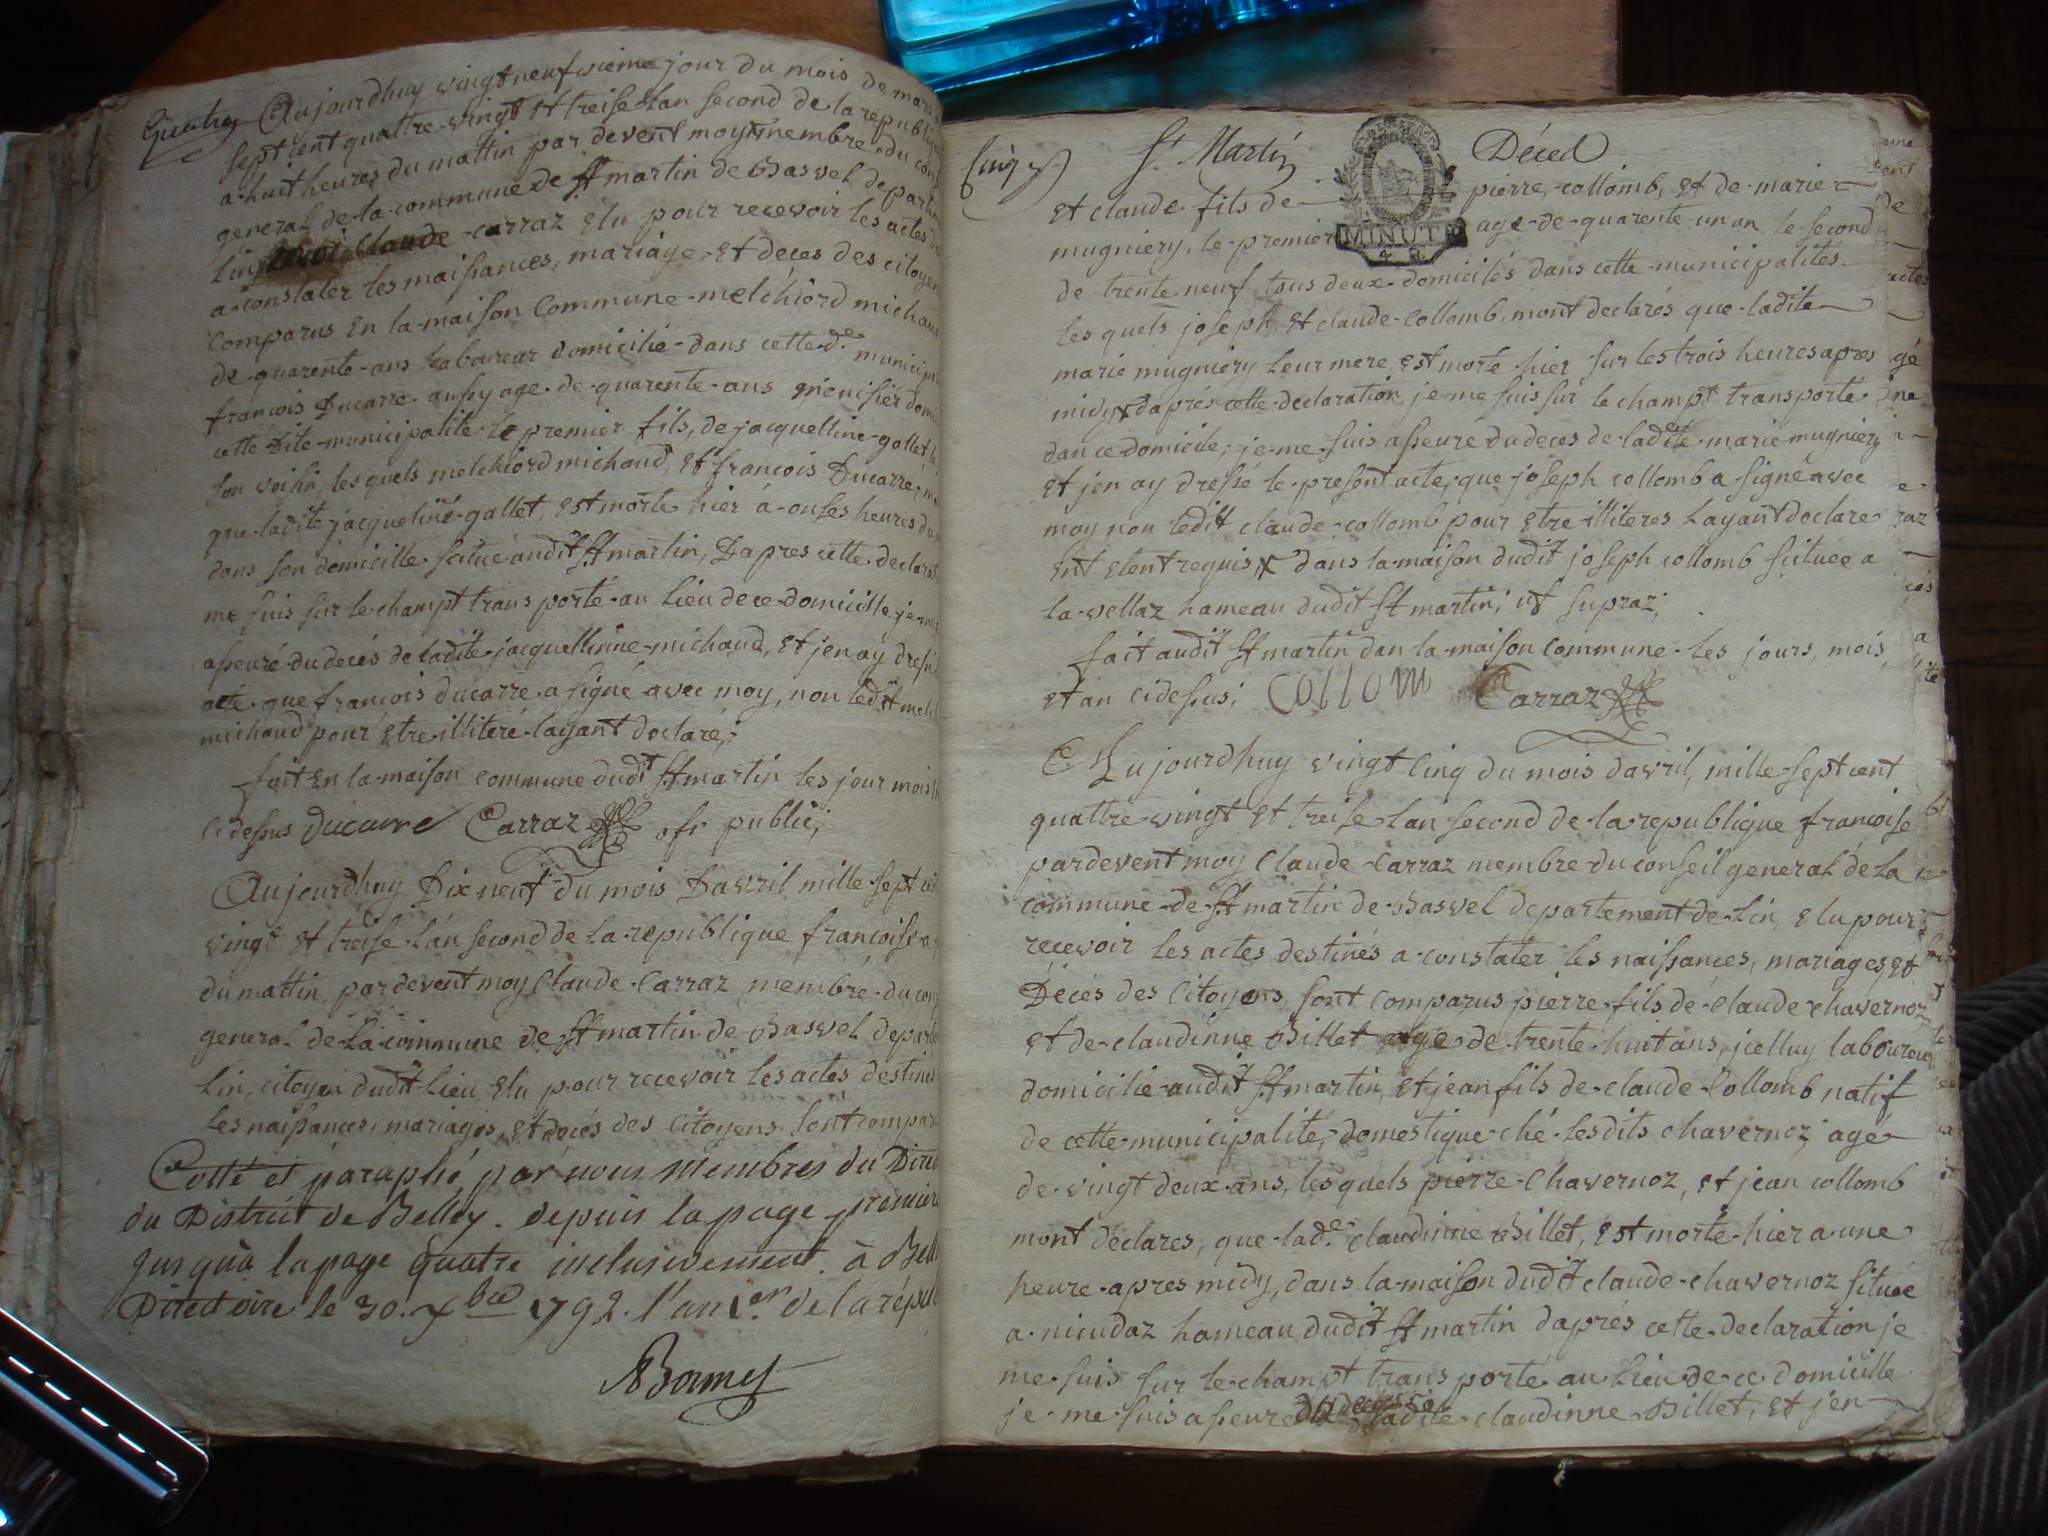 Aujourdhuy vingt neufvieme jour du mois de mars
sept cent quattre vingt et treise Lan second de la republiq
a huit heures du mattin par devent moy membre du cons
general de la commune de St martin de Basvel departm
Lin Claude carraz Elu pour recevoir les actes
a constater les naissances, mariage, et deces des citoyen
comparus En la maison commune melchiord michau
de quarente ans Laboureur domicilié dans cette de municip
francois Ducarre aussy age de quarente ans menisier domi
cette Dite municipalité le premier fils, de jacquelline gallet
son voisin, les quels melchiord michaud, et francois Ducarre,
que ladite jacqueline gallet, est morte hier á onses heures du
dans son domicille scitué audit St martin, Dapres cette declarat
me suis sur le champt transporté au Lieu de ce domicille je m
asseuré du decés de ladite jacquellinne michaud, et jen ay dress
acte que francois ducarre a signé avec moy, non ledit melch
michaud pour être illiteré layant declaré;
fait En la maison commune dudit St martin les jour mois
cidessus ducarre Carraz ofr public;
Aujourdhuy Dix neuf du mois Davril mille sept ce
vingt et treise Lan second de la republique francoise a
du mattin, pardevent moy Claude Carraz membre du con
general de La commune de St martin de Basvel depar
Lin, citoyen dudit Lieu Elu pour recevoir les actes destin
Les naissances, mariages, et decés des Citoyens Sont compar
Cotté et paraphé par nous membres du Dire
du District de Belley. depuis la page premiere
jusqu'à la page quatre inclusivement. à Bell
Directoire le 30. Xbre 1792. l'an 1er de la répub
St Martin Déced
et claude fils de pierre collomb, et de marie
MINUT
mugniery, le premier age de quarente un an le second
de trente neuf tous deux domiciliés dans cette municipalités
les quels joseph et claude collomb, mont declarés que ladite
marie mugniery Leur mere, est morte hier sur les trois heures apres
midy, daprés cette declaration je me suis sur le champt transporté
dan ce domicile, je me suis asseuré du deces de ladite marie mugniery
et jen ay dressé le present acte, que joseph collomb a signé avec
moy non ledit claude collomb pour etre illiteres Layant declare
ent etent requis dans la maison dudit joseph collomb scituée a
la vellaz hameau dudit St martin; ut supraz;
fait audit St martin dan la maison commune les jours, mois,
et an cidessus; collom Carraz
Aujourdhuy vingt cinq du mois davril, mille sept cent
quattre vingt et treise Lan second de la republique francoise
pardevent moy Claude Carraz membre du conseil general de La
commune de St martin de Basvel departement de Lin, elu pour
recevoir les actes destinés a constater les naissances, mariages, et
Déces des Citoyens, sont comparus pierre fils de claude chavernoz
et de claudinne Billet age de trente huit ans, jcelluy laboureur
domicilié audit St martin, et jean fils de claude Collomb natif
de cette municipalité, domestique ché lesdits chavernoz, agé
de vingt deux ans, les quels pierre Chavernoz, et jean collomb
mont déclares, que lade claudinne Billet, est morte hier a une
heure apres midy, dans la maison dudit claude chavernoz située
a nicudaz hameau dudit St martin daprés cette declaration je
me suis sur le champt transporté au Lieu de ce domicille
je me suis asseuré du deces de ladite claudinne Billet, et jen